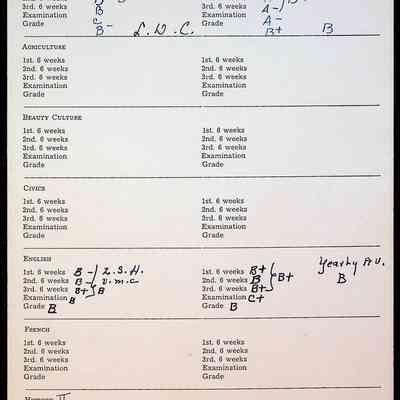 B
3rd. 6 weeks B 3rd. 6 weeks A-
Examination C Examination A-
Grade B- L.D.C. Grade B+ B
Agriculture
1st. 6 weeks 1st. 6 weeks
2nd. 6 weeks 2nd. 6 weeks
3rd. 6 weeks 3rd. 6 weeks
Examination Examination
Grade Grade
Beauty Culture
1st. 6 weeks 1st. 6 weeks
2nd. 6 weeks 2nd. 6 weeks
3rd. 6 weeks 3rd. 6 weeks
Examination Examination
Grade Grade
Civics
1st. 6 weeks 1st. 6 weeks
2nd. 6 weeks 2nd. 6 weeks
3rd. 6 weeks 3rd. 6 weeks
Examination Examination
Grade Grade
English
1st. 6 weeks B- L.S.H. 1st. 6 weeks B+ Yearly AV.
2nd. 6 weeks B- V.M.C 2nd. 6 weeks B B+ B
3rd. 6 weeks B+ B 3rd. 6 weeks B+
Examination B Examination C+
Grade B Grade B
French
1st. 6 weeks 1st. 6 weeks
2nd. 6 weeks 2nd. 6 weeks
3rd. 6 weeks 3rd. 6 weeks
Examination Examination
Grade Grade
II